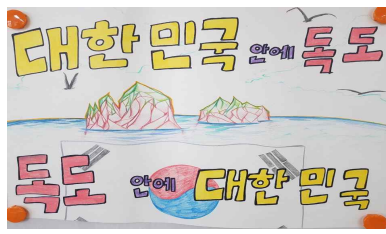 대한민국 안에 독도
독도 안에 대한민국